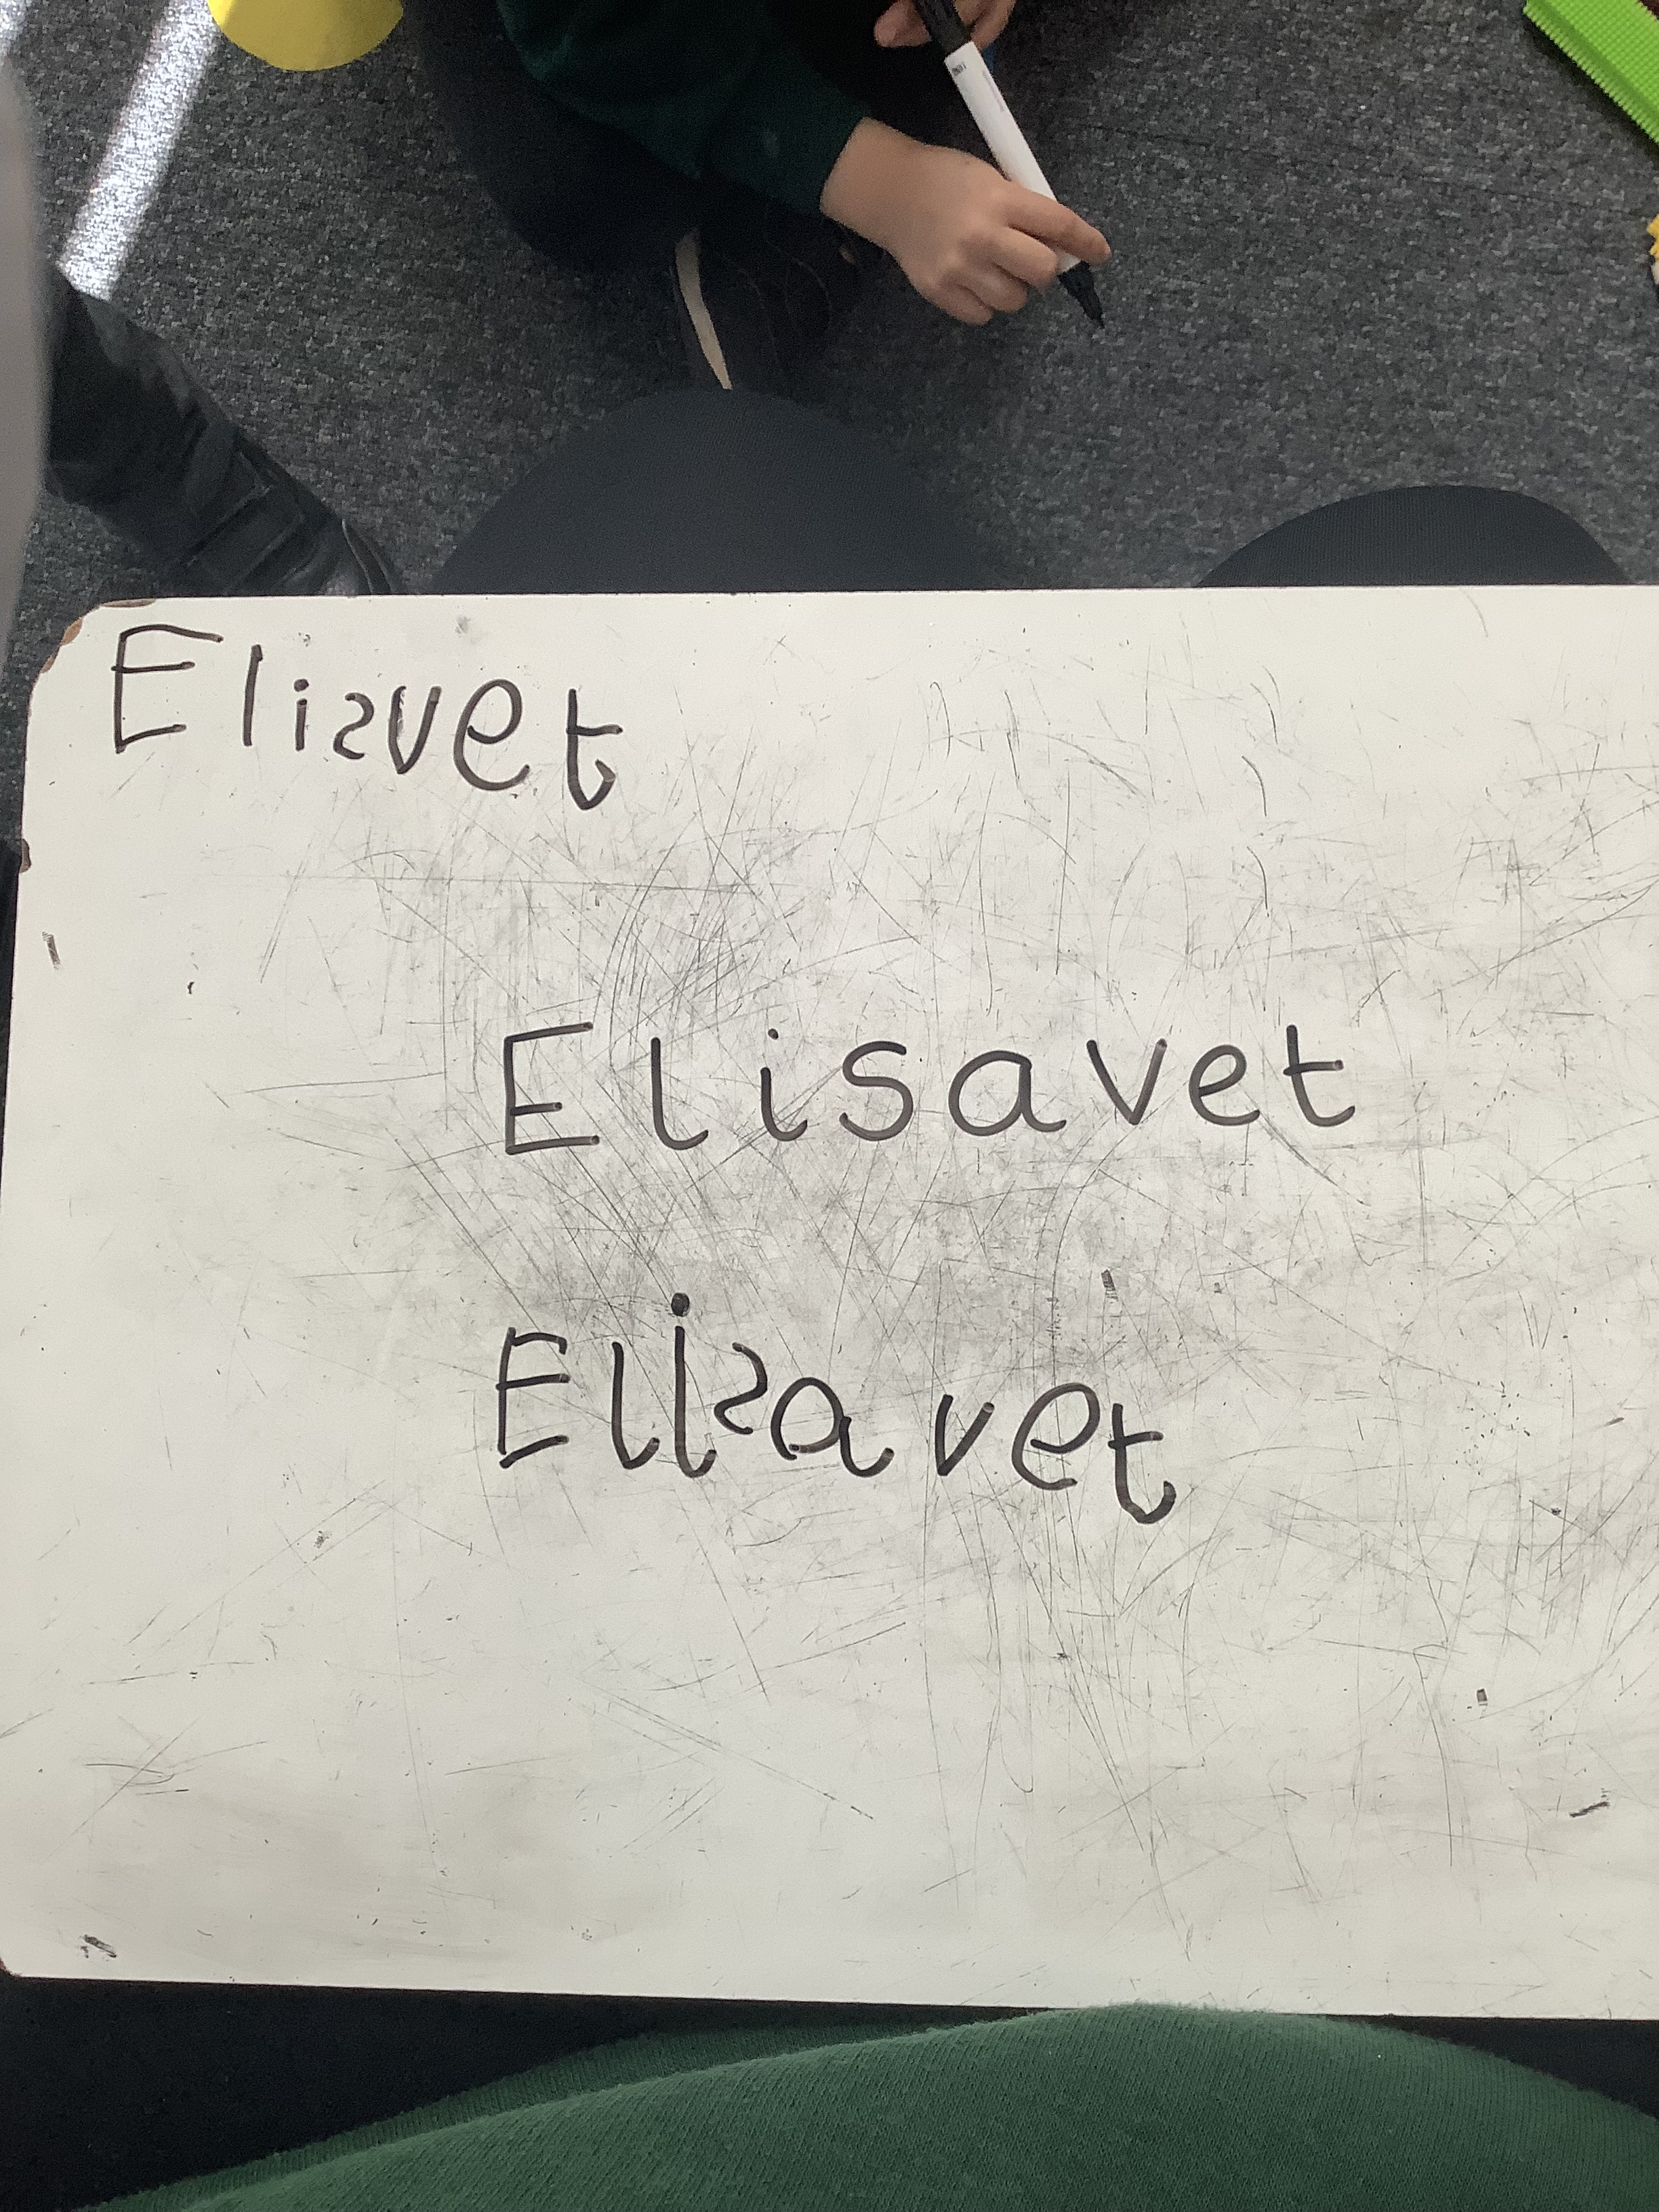 Elisvet
Elisavet
Elisavet